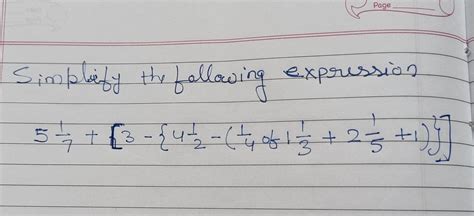 Page
Simplify the following expression
5 1/7 + [3 - {4 1/2 - (1/4 of 1 1/3 + 2 1/5 + 1)}]